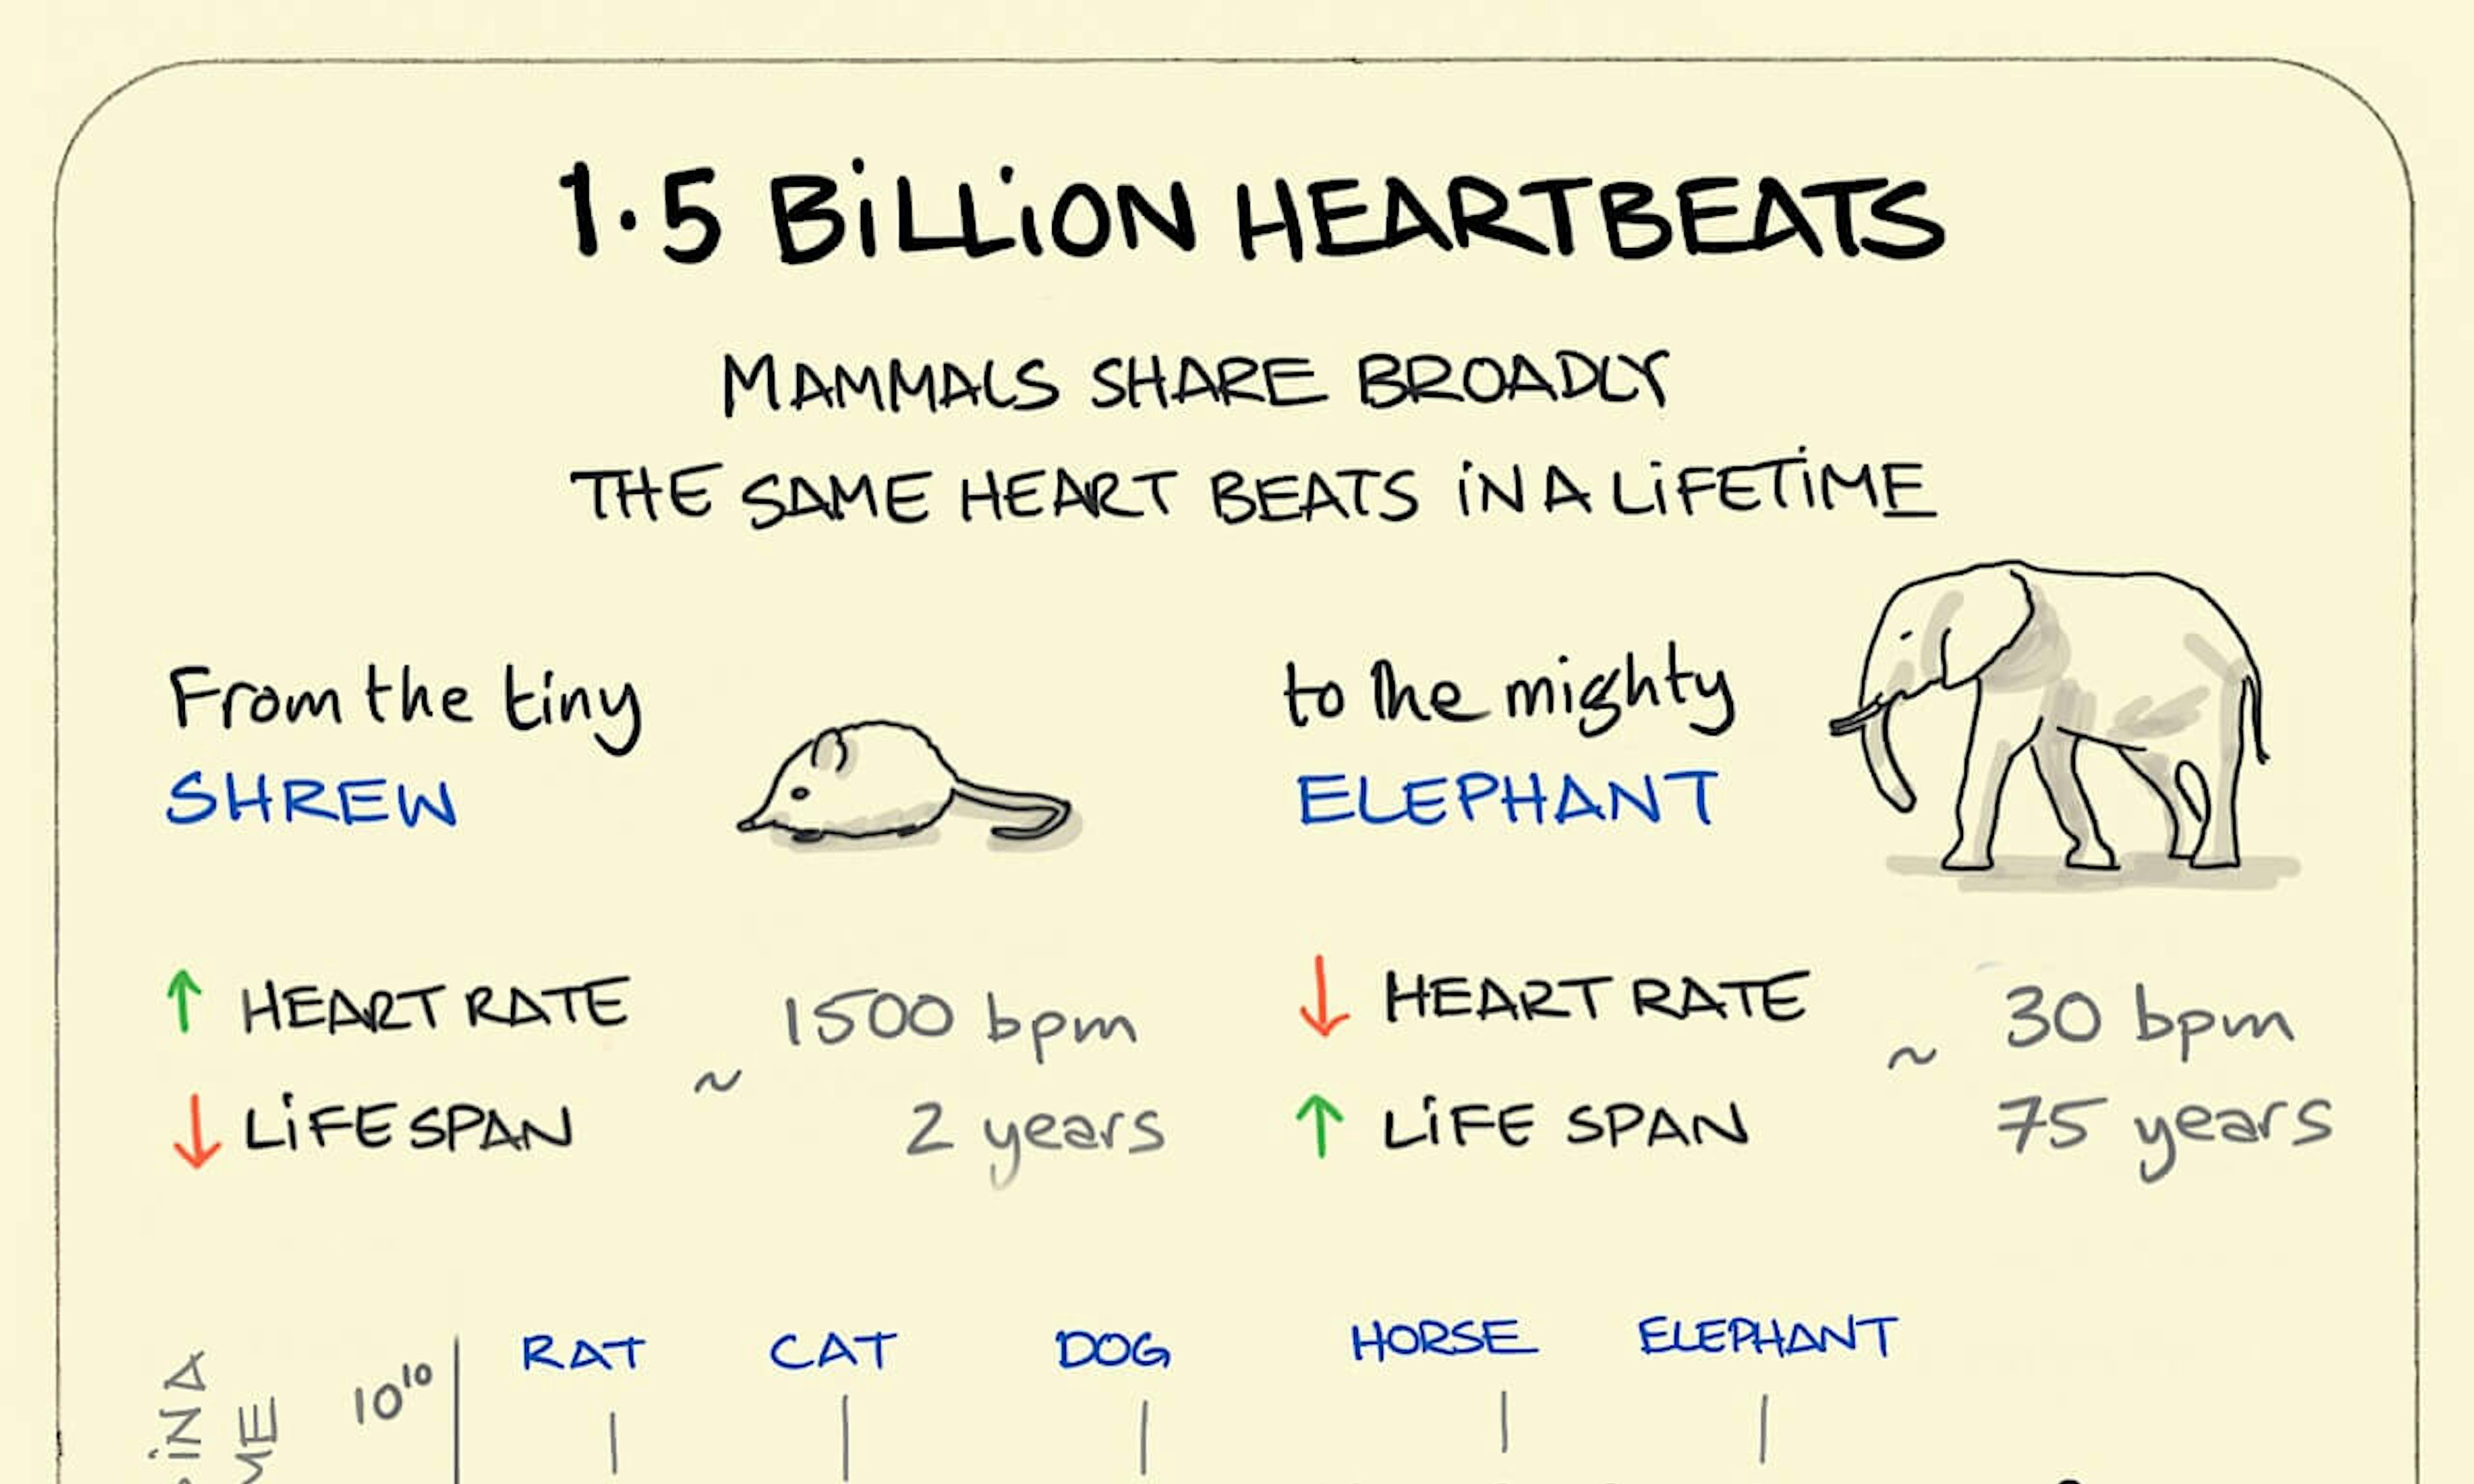 1.5 BiLLiON HEARTBEATS
MAMMALS SHARE BROADLY
THE SAME HEART BEATS iN A LiFETiME
From the tiny
SHREW
to the mighty
ELEPHANT
↑ HEART RATE
↓ LiFE SPAN
~
1500 bpm
2 years
↓ HEART RATE
↑ LiFE SPAN
~
30 bpm
75 years
RAT CAT DOG HORSE ELEPHANT
10¹⁰
iN A